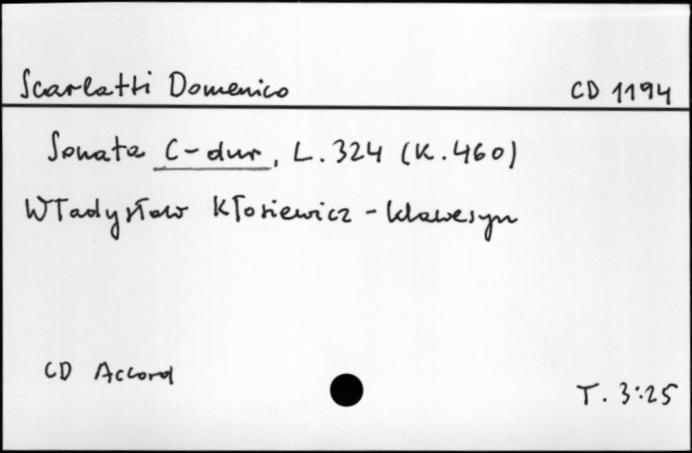 Scarlatti Domenico CD 1194
Sonata C-dur, L.324 (K.460)
Władysław Kłosiewicz - klawesyn
CD Accord
T. 3:25